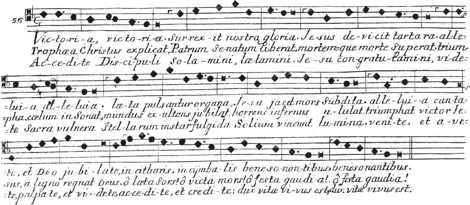 55
Victoria, victoria. Surrexit nostra gloria. Jesus devicit tartara. alle-
Trophæa Christus explicat, Patrum Senatum liberat, mortemque morte Superat. trium-
Accedite Discipuli solamini, lætamini. Jesu congratulamini, vide-
luia alleluia. læta pulsantur organa, Jesu jacet mors Subdita. alleluia canta-
pha, cœlum insonat, mundus exultens jubilat, horrens infernus ululat, triumphat victor Je-
te Sacra vulnera Stellarum instar fulgida Solium vincunt lumina. venite, et a-ve-
te, et Deo jubilate, in citharis, in cymbalis bene sonantibus, bene sonantibus.
sus, a ligno regnat Deus. ô læta Sors! ô victa mors! ô festa gaudia! ô festa gaudia!
te, palpate, et videte, accedite, et credite: dux vitæ vivus est, dux vitæ vivus est.